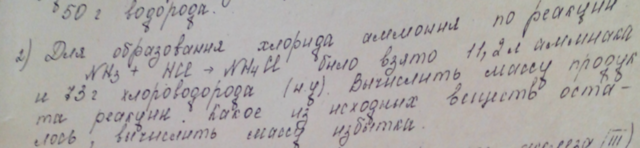 50 г водорода.
2) Для образования хлорида аммония по реакции
NH3 + HCl → NH4Cl было взято 11,2 л аммиака
и 73 г хлороводорода (н.у). Вычислить массу продук
та реакции. Какое из исходных веществ оста-
лось, вычислить массу избытка.
железа (III)